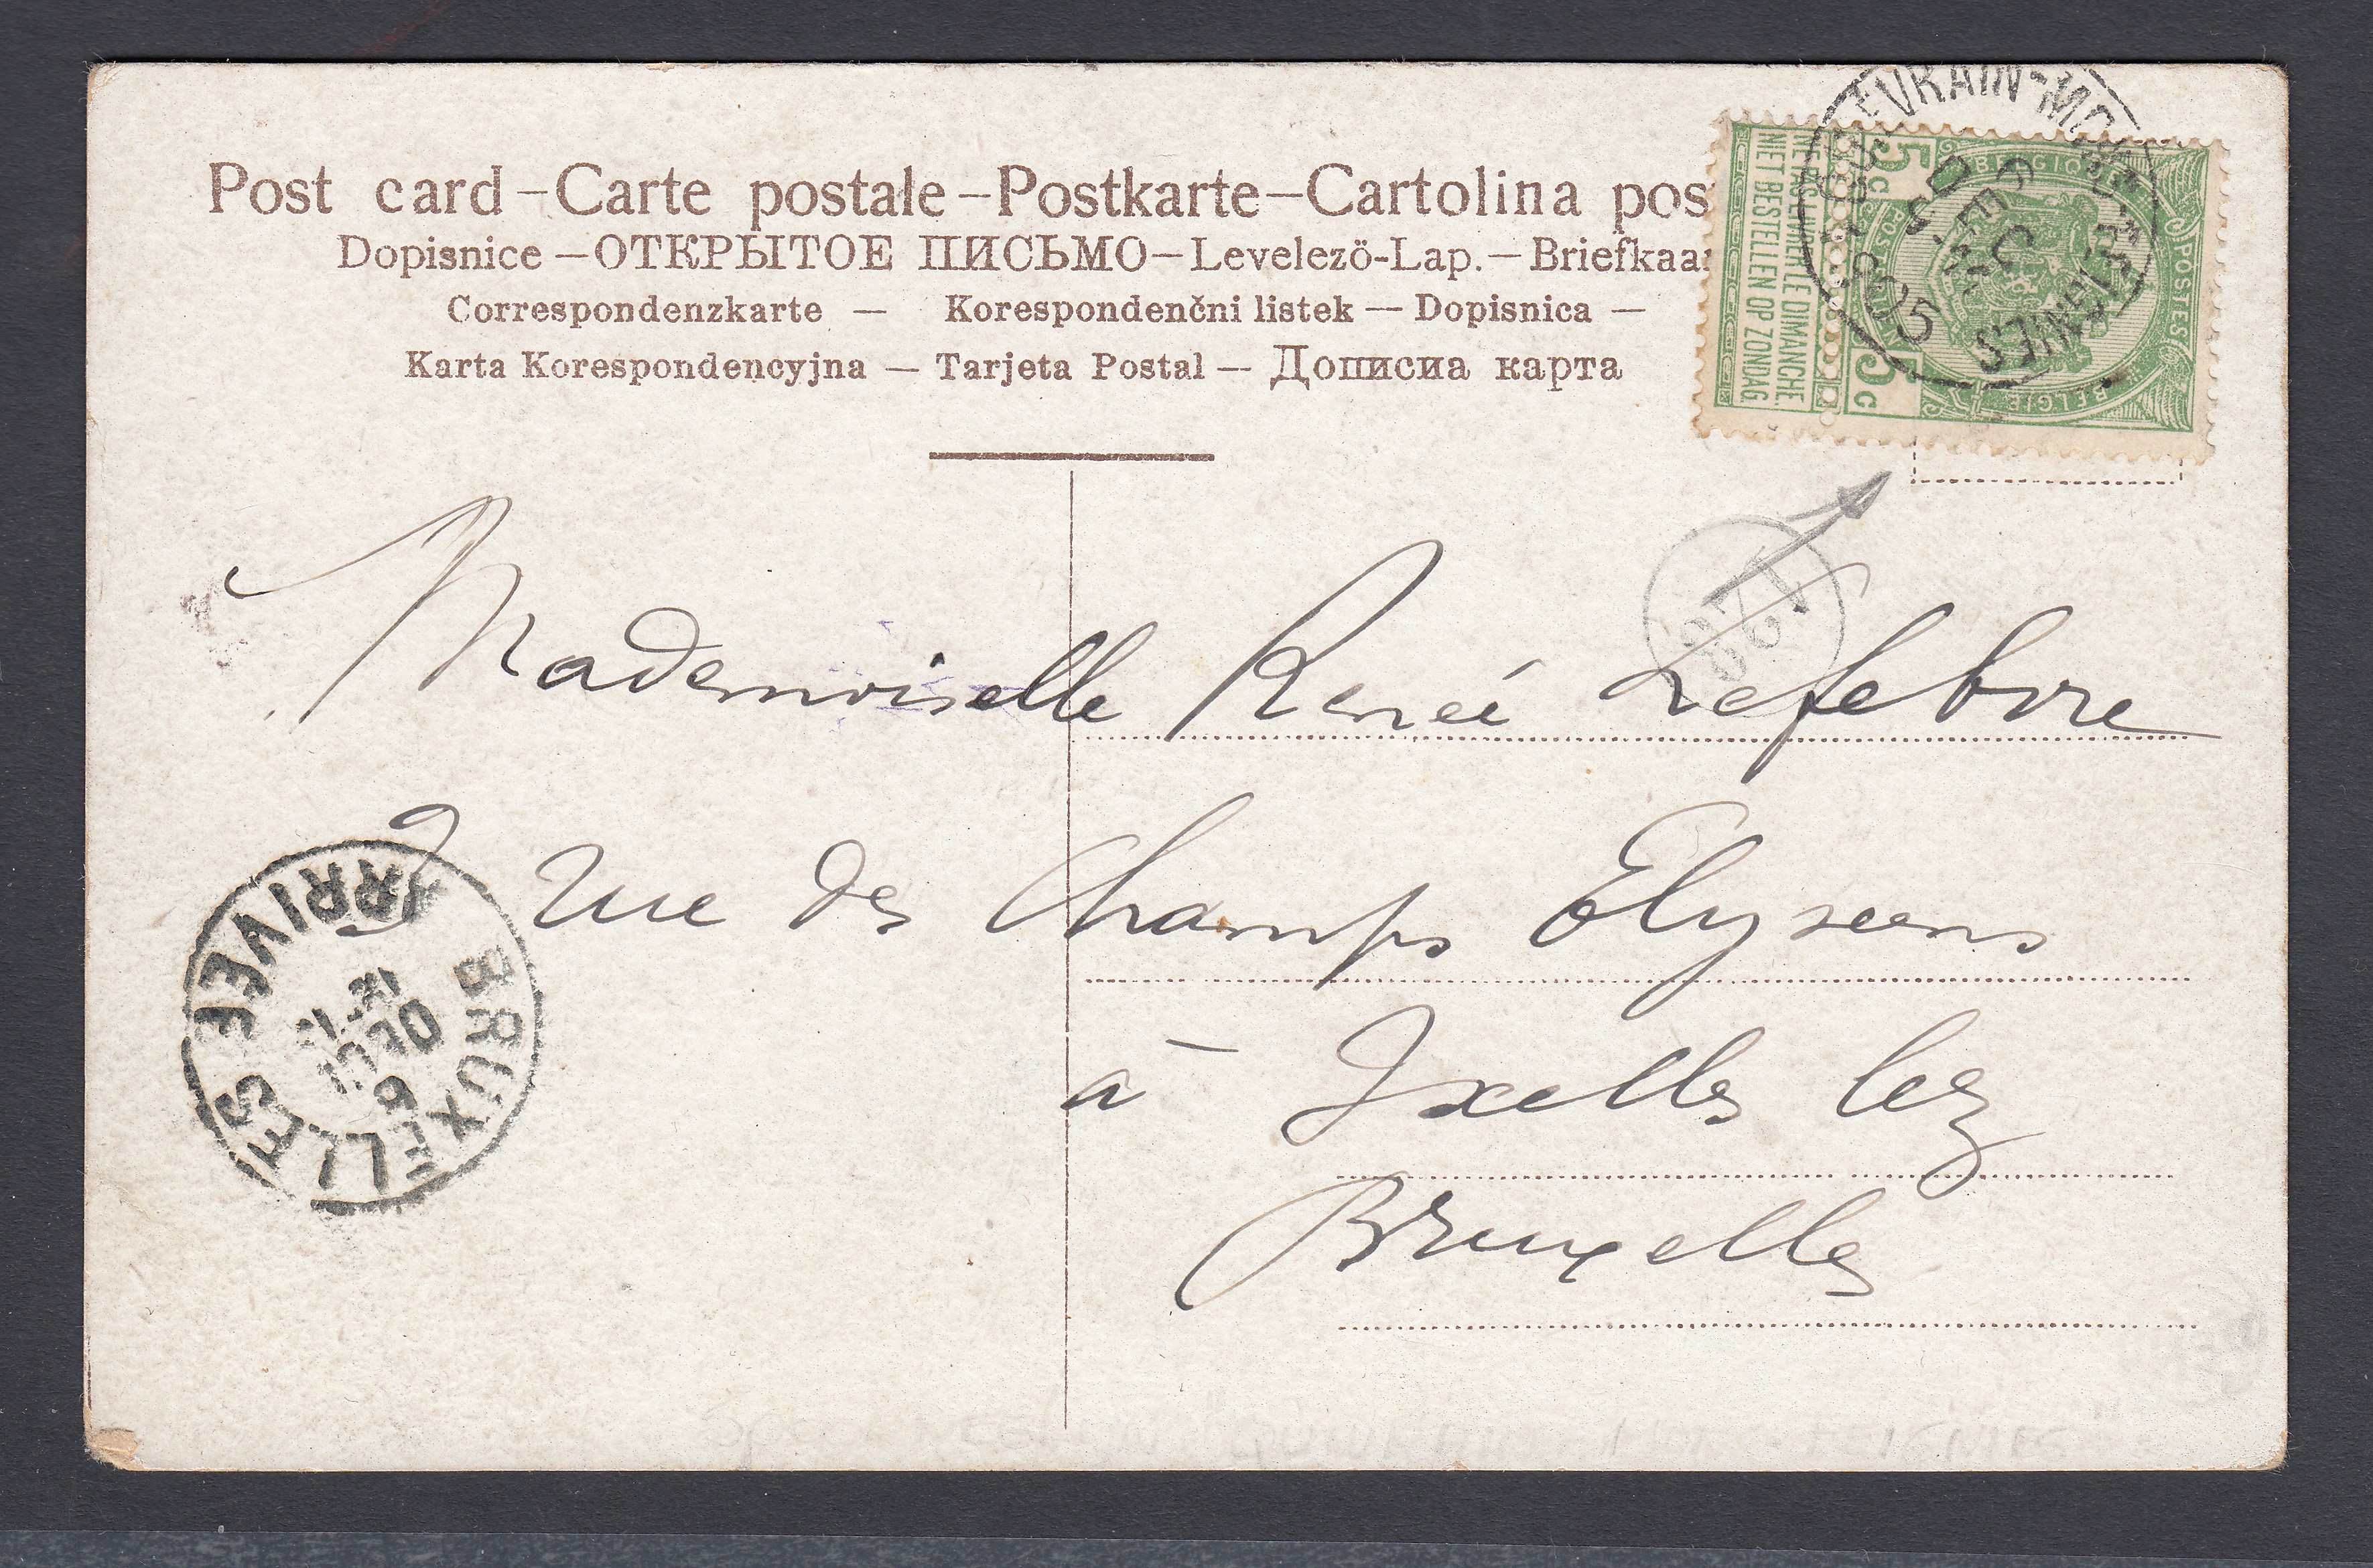 Post card – Carte postale – Postkarte – Cartolina pos
Dopisnice – ОТКРЫТОЕ ПИСЬМО – Levelezö-Lap. – Briefkaa
Correspondenzkarte — Korespondenčni listek — Dopisnica —
Karta Korespondencyjna — Tarjeta Postal — Дописна карта
NE PAS LIVRER LE DIMANCHE
NIET BESTELLEN OP ZONDAG.
5 c 5 c
BELGIQUE
POSTES
BELGIË
1905
128
Mademoiselle Reneé Lefebvre
9 rue des Champs Elyseens
à Ixelles lez
Bruxelles
BRUXELLES
ARRIVEE